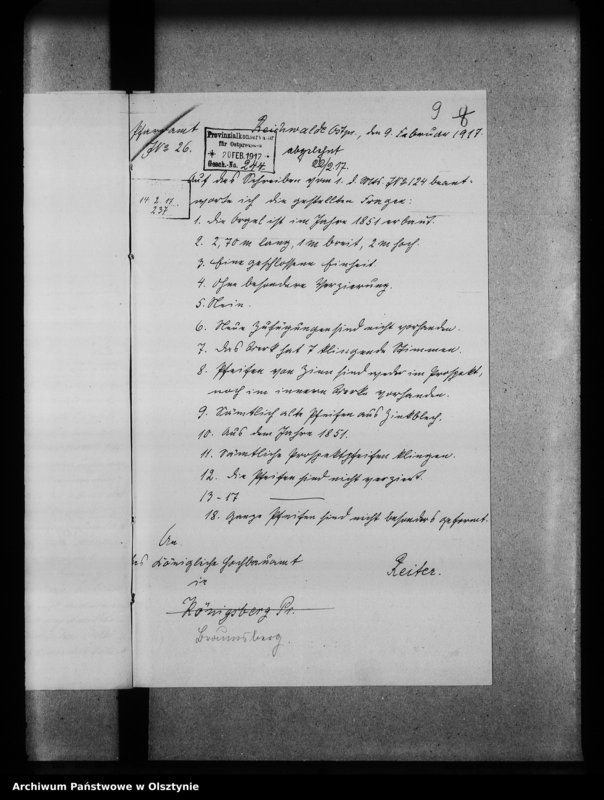 9 8
Pfarramt Reichwalde Ostpr., den 9. Februar 1917.
J№ 26.
Provinzialkonservator
für Ostpreussen
* 20 FEB. 1917 *
Gesch.-No. 244.
abgelehnt
22/2 17.
Auf das Schreiben vom 1. d. Mts J№ 124 beant-
worte ich die gestellten Fragen:
14. 2. 17.
237
1. Die Orgel ist im Jahre 1851 erbaut.
2. 2,70 m lang, 1 m breit, 2 m hoch.
3. Eine geschlossene Einheit.
4. Ohne besondere Verzierung.
5. Nein.
6. Neue Zufügungen sind nicht vorhanden.
7. Das Werk hat 7 klingende Stimmen.
8. Pfeifen von Zinn sind weder im Prospekt,
noch im innern Werke vorhanden.
9. Sämtlich alte Pfeifen aus Zinkblech.
10. Aus dem Jahre 1851.
11. Sämtliche Prospektpfeifen klingen.
12. Die Pfeifen sind nicht verziert.
13-17 ———
18. Ganze Pfeifen sind nicht besonders geformt.
An
das Königliche Hochbauamt
Reiter.
in
Königsberg Pr.
Braunsberg.
Archiwum Państwowe w Olsztynie